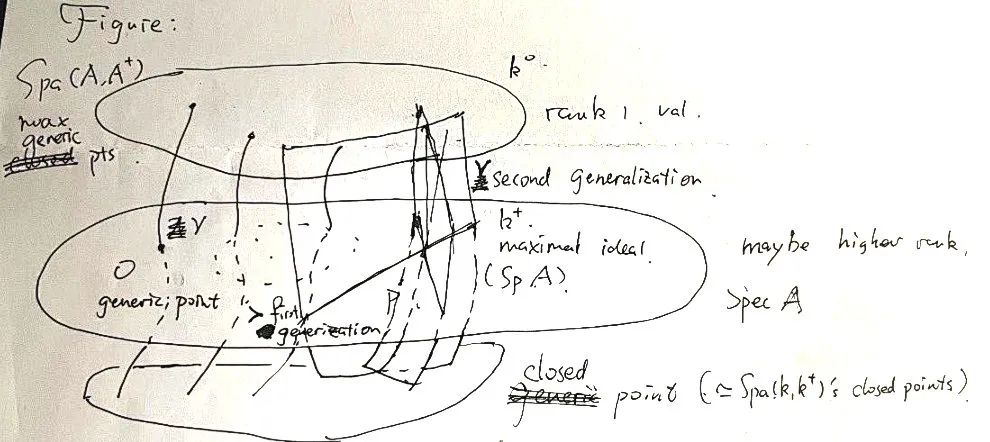 Figure:
Spa(A,A⁺)
max
generic
closed pts.
k°
rank 1, val.
second generalization
γ
k⁺.
maximal ideal.
(Sp A).
maybe higher rank,
Spec A
O
generic, point
first
generization
P
closed
generic point (≃ Spa(k,k⁺)'s closed points)